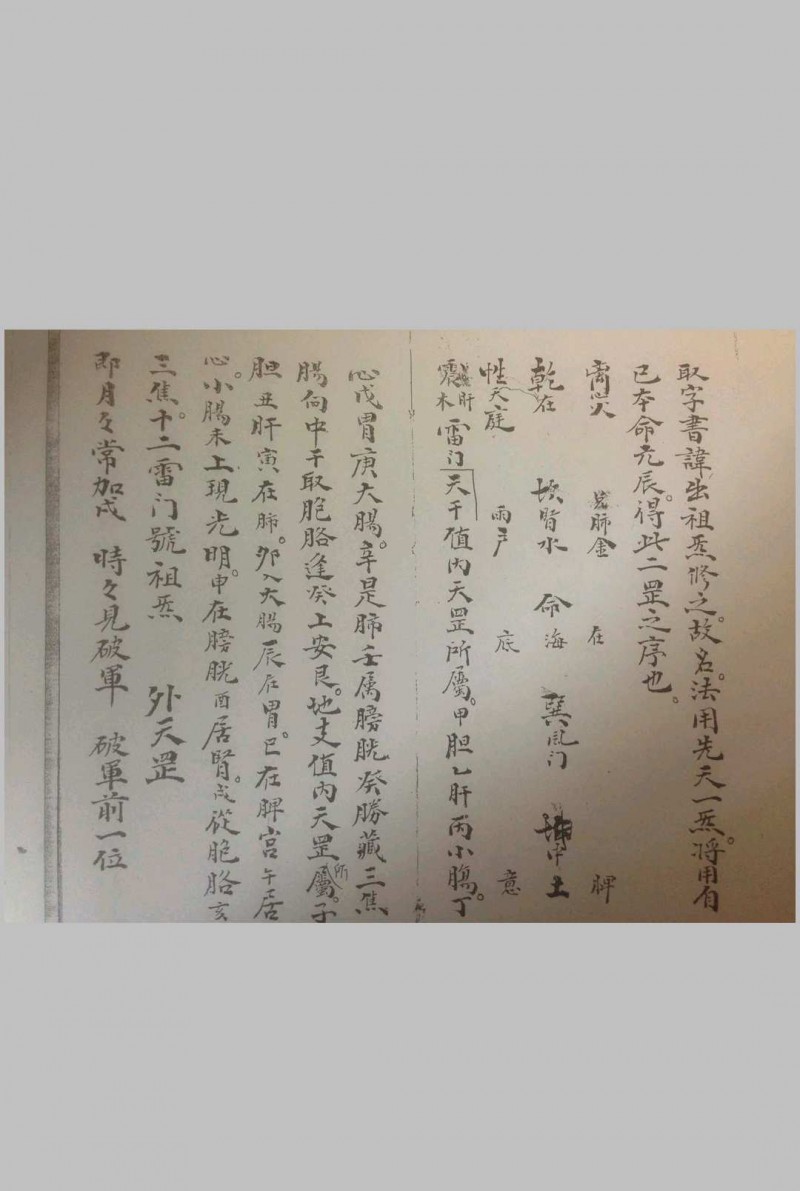 取字書諱出祖炁修之。故名。法用先天一炁。将用自
已本命元辰。得此二罡之序也。
火 肺金 在 脾
乾在 坎腎水 命海 巽風门 中土
性天庭 雨户 底 意
震木 肝 雷门 天干值内天罡所屬。甲胆乙肝丙小腸。丁
心戊胃庚大腸。辛是肺壬属膀胱癸腎藏三焦
腸向中干取胞胳逢癸上安良。地支值内天罡所屬。子
胆丑肝寅在肺。卯入大腸辰在胃。巳在脾宮午居
心。小腸未上現光明。申在膀胱酉居腎。戌從胞胳亥
三焦。十二雷门號祖炁 外天罡
即月々常加戌 時々見破軍 破軍前一位